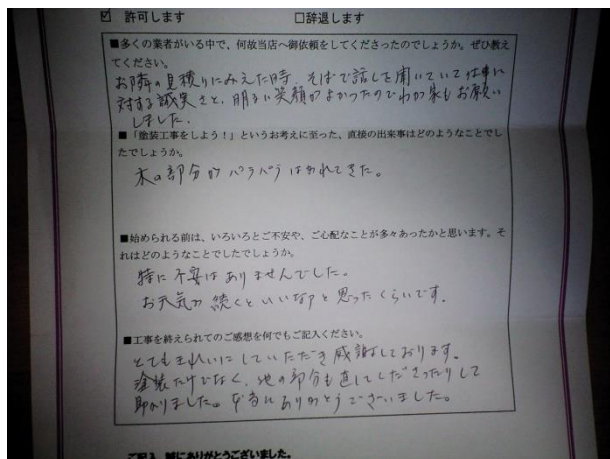 ☑ 許可します □辞退します
■多くの業者がいる中で、何故当店へ御依頼をしてくださったのでしょうか。ぜひ教え
てください。
お隣の見積りにみえた時、そばで話しを聞いていて仕事に
対する誠実さと、明るい笑顔がよかったのでわが家もお願い
しました。
■「塗装工事をしよう！」というお考えに至った、直接の出来事はどのようなことでし
たでしょうか。
木の部分がパラパラはがれてきた。
■始められる前は、いろいろとご不安や、ご心配なことが多々あったかと思います。そ
れはどのようなことでしたでしょうか。
特に不安はありませんでした。
お天気が続くといいなアと思ったくらいです。
■工事を終えられてのご感想を何でもご記入ください。
とてもきれいにしていただき感謝しております。
塗装だけでなく、他の部分も直してくださったりして
助かりました。本当にありがとうございました。
ご記入、誠にありがとうございました。